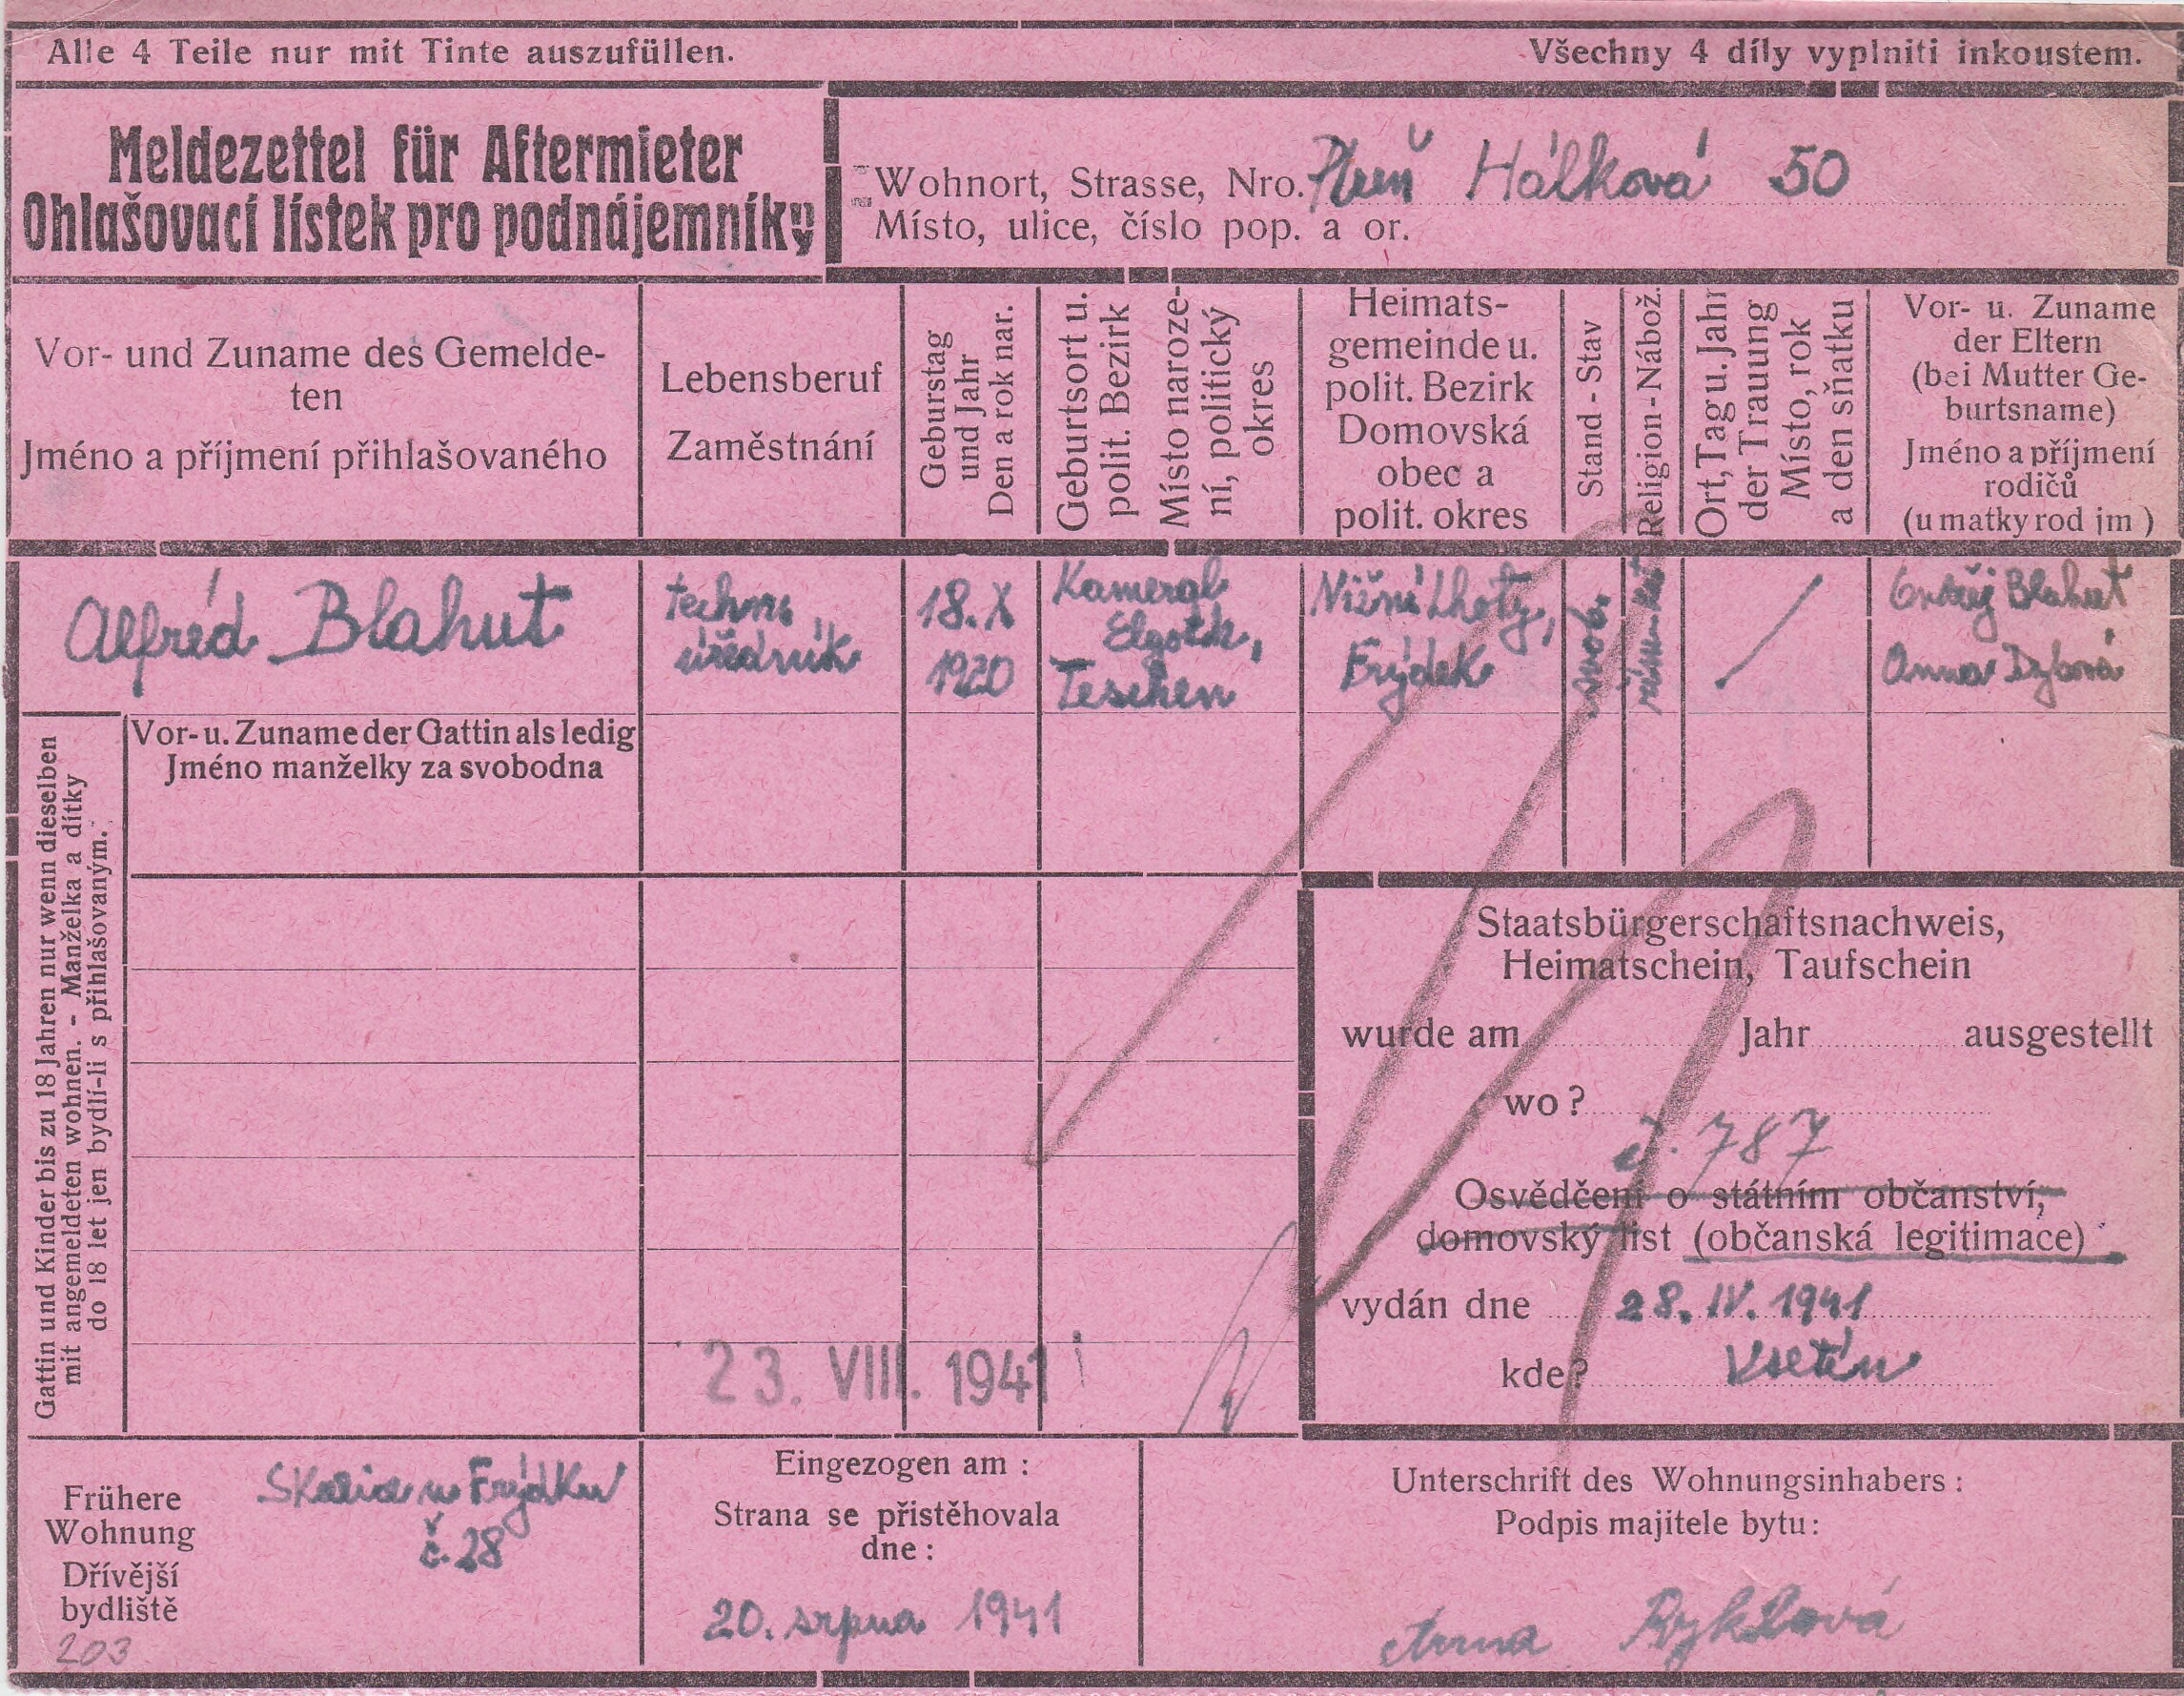 Alle 4 Teile nur mit Tinte auszufüllen.
Všechny 4 díly vyplniti inkoustem.
Meldezettel für Aftermieter
Ohlašovací lístek pro podnájemníky
Wohnort, Strasse, Nro. Plzeň Hálková 50
Místo, ulice, číslo pop. a or.
Vor- und Zuname des Gemelde-
ten
Jméno a příjmení přihlašovaného
Lebensberuf
Zaměstnání
Geburstag
und Jahr
Den a rok nar.
Geburtsort u.
polit. Bezirk
Místo naroze-
ní, politický
okres
Heimats-
gemeinde u.
polit. Bezirk
Domovská
obec a
polit. okres
Stand - Stav
Religion - Nábož.
Ort, Tag u. Jahr
der Trauung
Místo, rok
a den sňatku
Vor- u. Zuname
der Eltern
(bei Mutter Ge-
burtsname)
Jméno a příjmení
rodičů
(u matky rod jm )
Alfréd Blahut
techn.
úředník
18. X
1920
Kameral
Elgoth,
Teschen
Nižní Lhoty,
Frýdek
svob.
Ondřej Blahut
Anna
Vor- u. Zuname der Gattin als ledig
Jméno manželky za svobodna
Gattin und Kinder bis zu 18 Jahren nur wenn dieselben
mit angemeldeten wohnen. - Manželka a dítky
do 18 let jen bydlí-li s přihlašovaným.
Staatsbürgerschaftsnachweis,
Heimatschein, Taufschein
wurde am Jahr ausgestellt
wo ?
č. 787
Osvědčení o státním občanství,
domovský list (občanská legitimace)
vydán dne 28. IV. 1941
kde? Vsetín
23. VIII. 1941
Frühere
Wohnung
Dřívější
bydliště
Skalice u Frýdku
č. 28
203
Eingezogen am :
Strana se přistěhovala
dne :
20. srpna 1941
Unterschrift des Wohnungsinhabers :
Podpis majitele bytu :
Anna